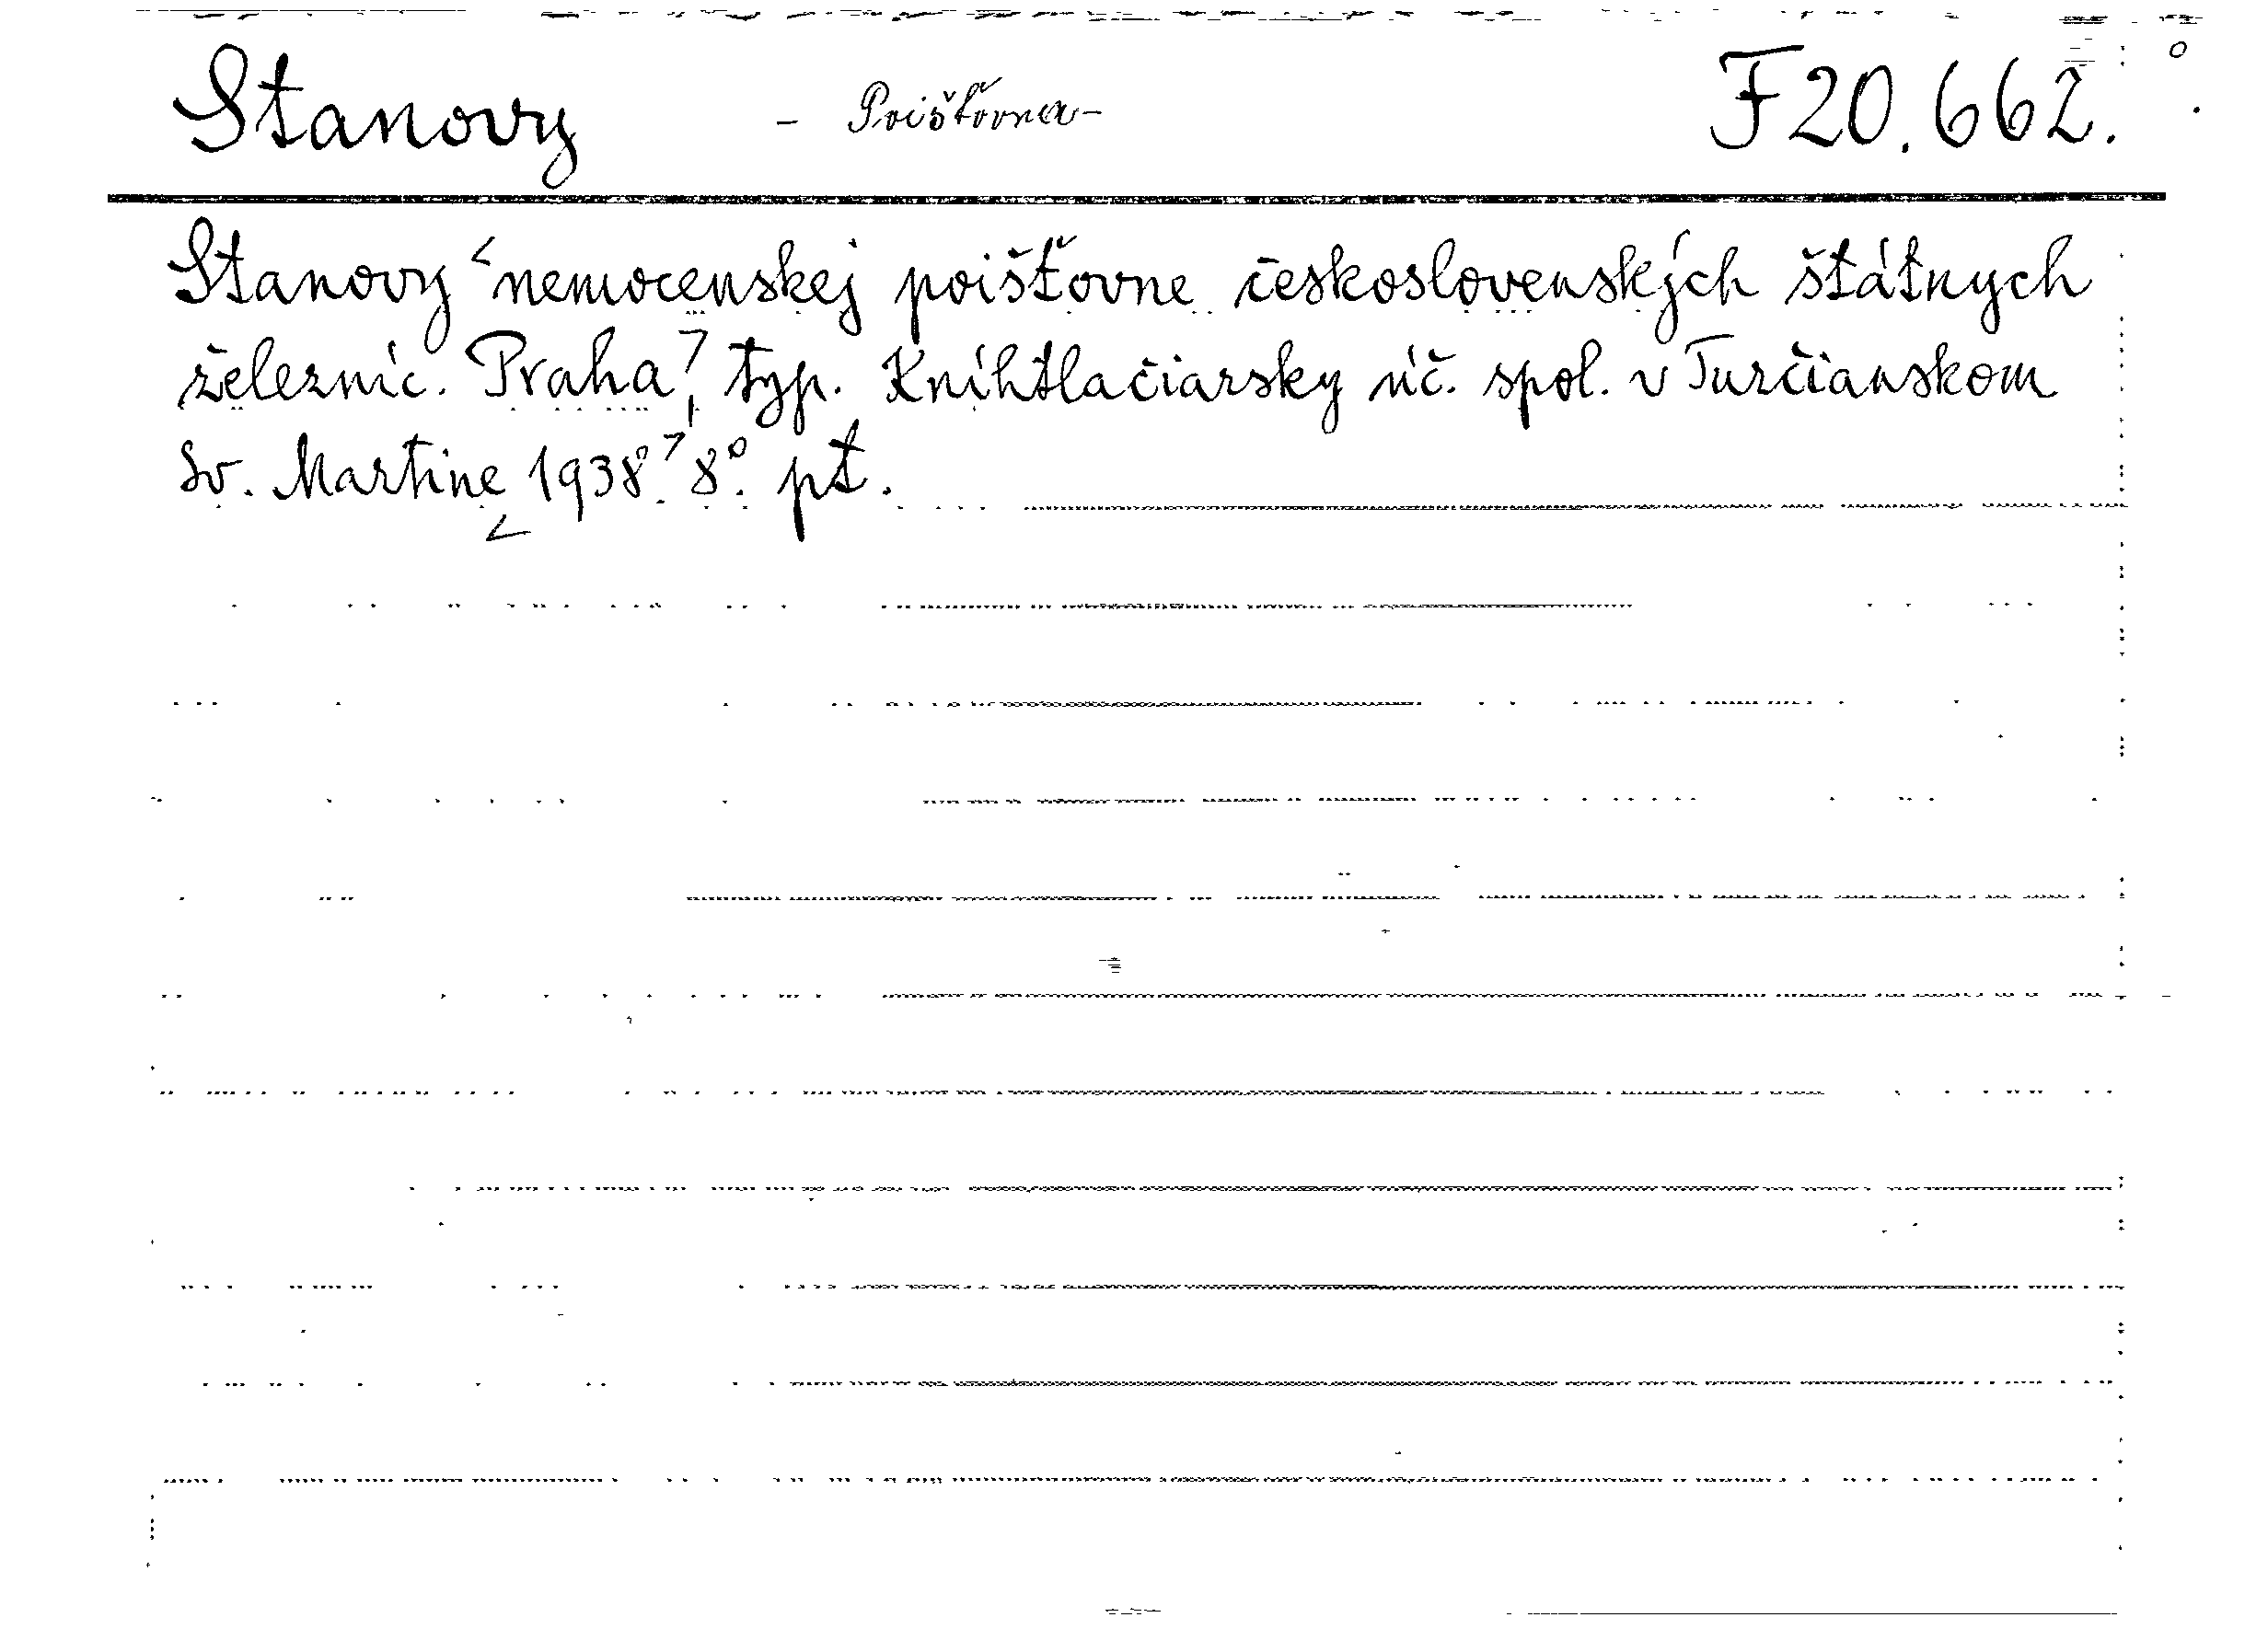 Stanovy - Poišťovňa - F 20.662.
Stanovy <nemocenskej poišťovne československých štátnych
železníc. Praha>, typ. Kníhtlačiarsky úč. spol. v Turčianskom
Sv. Martine <1938.> 8°. pt.